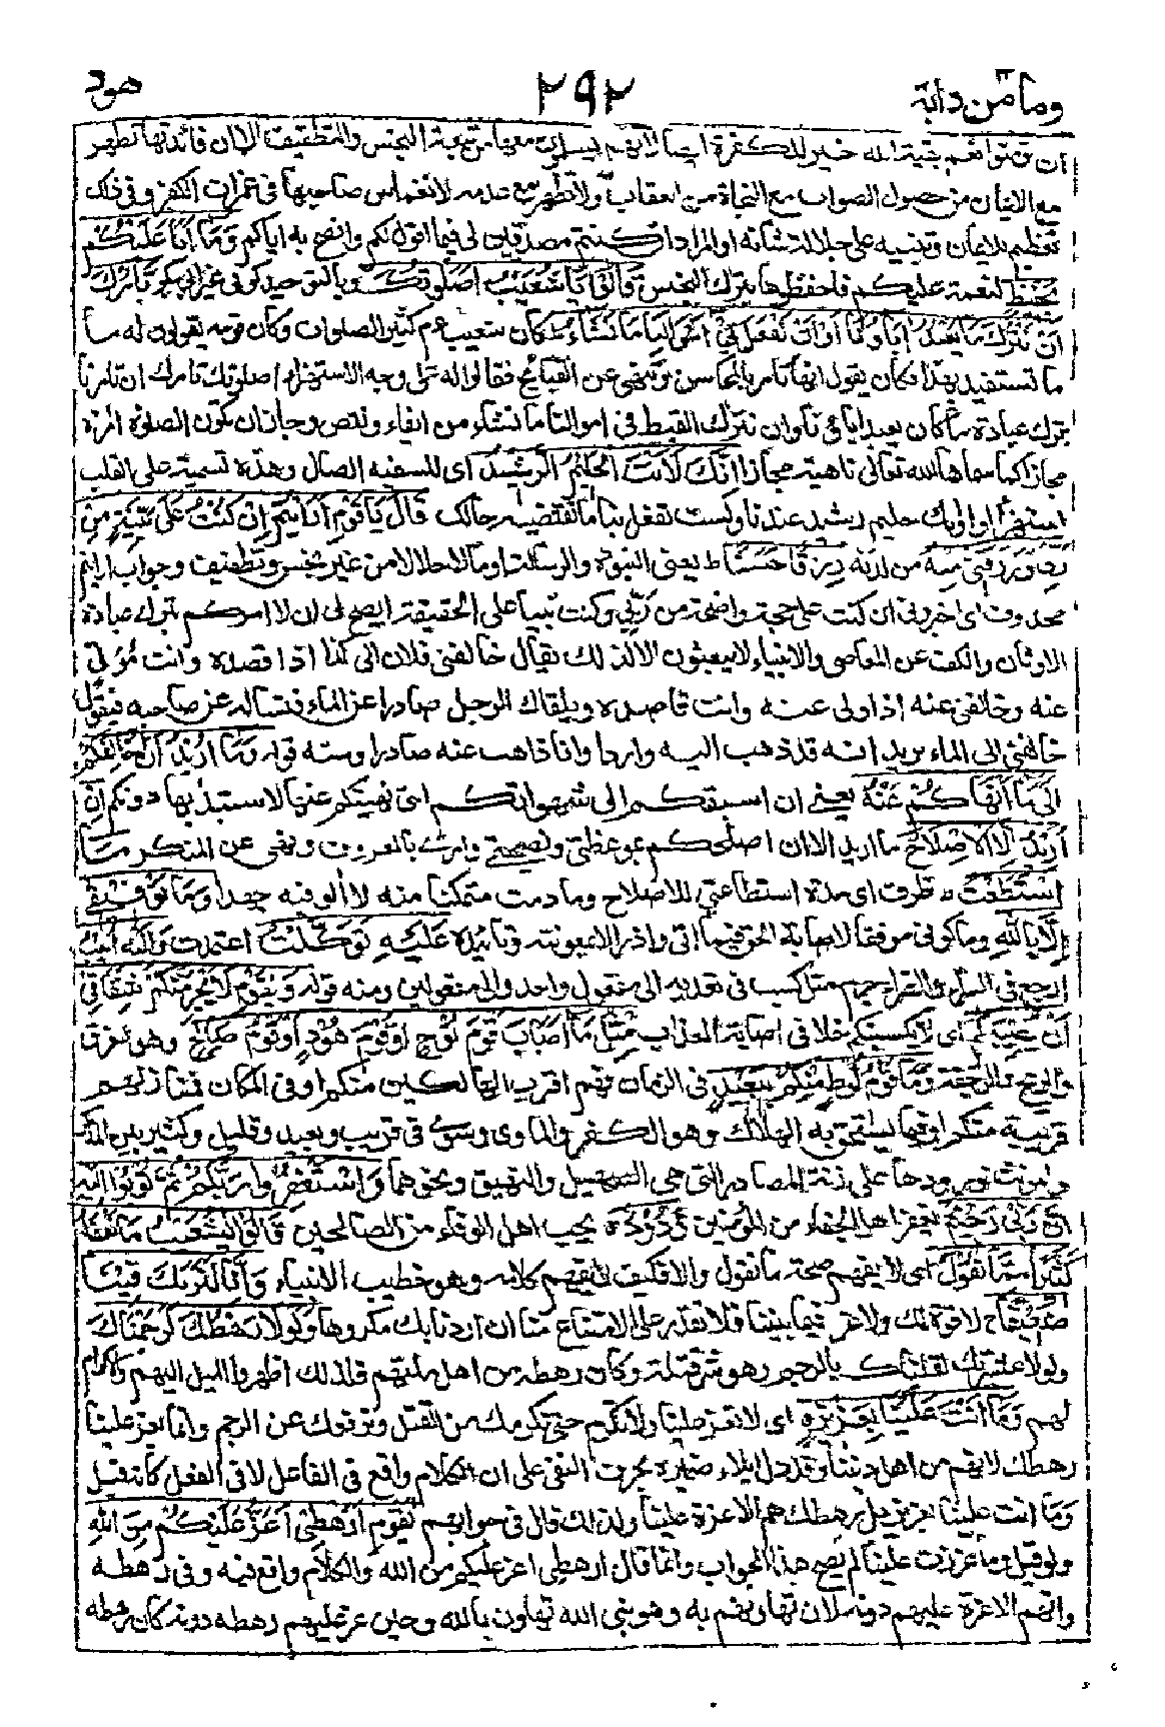 وما من دابة ٢٩٢ هود
ان تؤمنوا نعم بقية الله خير للكفرة ايضا لانهم يسلمون معها من تبعة البخس والتطفيف الا ان فائدتها تظهر
مع الايمان من حصول الصواب مع النجاة من العقاب ولا تظهر مع عدمه لانغماس صاحبها فى غمرات الكفر وفى ذلك
تعظيم للايمان وتنبيه على جلالة شانه او المراد ان كنتم مصدقين لى فيما اقول لكم وانصح به اياكم وَمَا اَنَا عَلَيْكُمْ
بِحَفِيْظٍ لنعمه عليكم فاحفظوها بترك البخس قَالُوْا يَا شُعَيْبُ اَصَلٰوتُكَ وبالتوحيد كوفى غير ابى بكر تَاْمُرُكَ
اَنْ نَتْرُكَ مَا يَعْبُدُ اٰبَاؤُنَا اَوْ اَنْ نَفْعَلَ فِيْ اَمْوَالِنَا مَا نَشَاءُ كان شعيب عم كثير الصلوات وكان قومه يقولون له ما
ما تستفيد بهذا فكان يقول انها تامر بالمحاسن وتنهى عن القبائح فقالوا له على وجه الاستهزاء اصلوتك تامرك ان تامرنا
بترك عبادة ما كان يعبد اباؤنا وان نترك القبط فى اموالنا ما نشاء من ايفاء ونقص وجاز ان تكون الصلوة امرة
مجازا كما سماها الله تعالى ناهية مجازا اِنَّكَ لَاَنْتَ الْحَلِيْمُ الرَّشِيْدُ اى للسفيه الضال وهذه تسمية على القلب
استهزاء او انك حليم رشيد عندنا ولست تفعل بنا ما تقتضيه حالك قَالَ يَا قَوْمِ اَرَاَيْتُمْ اِنْ كُنْتُ عَلٰى بَيِّنَةٍ مِنْ
رَبِّيْ وَرَزَقَنِيْ مِنْهُ من لدنه رِزْقًا حَسَنًا ط يعنى النبوة والرسالة او مالا حلالا من غير بخس وتطفيف وجواب ارايتم
محذوف اى اخبرونى ان كنت على حجة واضحة من ربى وكنت نبيا على الحقيقة ايصح لى ان لا امركم بترك عبادة
الاوثان والكف عن المعاصى والانبياء لا يبعثون الا لذلك يقال خالفنى فلان الى كذا اذا قصده وانت مُوَلٍّ
عنه وخالفنى عنه اذا ولى عنه وانت قاصده ويلقاك الرجل صادرا عن الماء فتساله عن صاحبه فيقول
خالفنى الى الماء يريد انه قد ذهب اليه واردا وانا ذاهب عنه صادرا ومنه قوله وَمَا اُرِيْدُ اَنْ اُخَالِفَكُمْ
اِلٰى مَا اَنْهَاكُمْ عَنْهُ يعنى ان اسبقكم الى شهواتكم التى نهيتكم عنها لاستبد بها دونكم اِنْ
اُرِيْدُ اِلَّا الْاِصْلَاحَ ما اريد الا ان اصلحكم بموعظتى ونصيحتى وامرى بالمعروف ونهى عن المنكر مَا
اسْتَطَعْتُ ظرف اى مدة استطاعتى للاصلاح وما دمت متمكنا منه لا الو فيه جهدا وَمَا تَوْفِيْقِيْ
اِلَّا بِاللّٰهِ وما كونى موفقا لاصابة الحق فيما اتى واذر الا بمعونته وتائيده عَلَيْهِ تَوَكَّلْتُ اعتمدت وَاِلَيْهِ اُنِيْبُ
ارجع فى السراء والضراء جرم مثل كسب فى تعديه الى مفعول واحد والى مفعولين ومنه قوله وَيٰقَوْمِ لَا يَجْرِمَنَّكُمْ شِقَاقِيْ
اَنْ يُّصِيْبَكُمْ اى لا يكسبنكم خلافى اصابة العذاب مِّثْلُ مَا اَصَابَ قَوْمَ نُوْحٍ اَوْ قَوْمَ هُوْدٍ اَوْ قَوْمَ صَالِحٍ وهو الغرق
والريح والرجفة وَمَا قَوْمُ لُوْطٍ مِّنْكُمْ بِبَعِيْدٍ فى الزمان فهم اقرب الهالكين منكم او فى المكان فمنازلهم
قريبة منكم او فيما يستحق به الهلاك وهو الكفر والمساوى وسوى فى قريب وبعيد وقليل وكثير بين المذكر
والمونث لورودها على زنة المصادر التى هى الصهيل والنهيق ونحوهما وَاسْتَغْفِرُوْا رَبَّكُمْ ثُمَّ تُوْبُوْا اِلَيْهِ
اِنَّ رَبِّيْ رَحِيْمٌ يغفر لاهل الجفاء من المؤمنين وَّدُوْدٌ يحب اهل الوفاء من الصالحين قَالُوْا يٰشُعَيْبُ مَا نَفْقَهُ
كَثِيْرًا مِّمَّا تَقُوْلُ اى لا نفهم صحة ما تقول والا فكيف لا يفهم كلامه وهو خطيب الانبياء وَاِنَّا لَنَرٰىكَ فِيْنَا
ضَعِيْفًا ج لا قوة لك ولا عز فيما بيننا فلا تقدر على الامتناع منا ان اردنا بك مكروها وَلَوْلَا رَهْطُكَ لَرَجَمْنَاكَ
ولولا عشيرتك لقتلناك بالرجم وهو شر قتلة وكان رهطه من اهل ملتهم فلذلك اظهروا الميل اليهم والاكرام
لهم وَمَا اَنْتَ عَلَيْنَا بِعَزِيْزٍ اى لا تعز علينا ولا تكرم حتى نكرمك من القتل ونرفعك عن الرجم وانما يعز علينا
رهطك لانهم من اهل ديننا وقد دل ايلاء ضميره بحرف النفى على ان الكلام واقع فى الفاعل لا فى الفعل كانه قيل
وما انت علينا بعزيز بل رهطك هم الاعزة علينا ولذلك قال فى جوابهم يٰقَوْمِ اَرَهْطِيْ اَعَزُّ عَلَيْكُمْ مِّنَ اللّٰهِ
ولو قيل وما عززت علينا لم يصح هذا الجواب وانما قال ارهطى اعز عليكم من الله والكلام واقع فيه وفى رهطه
وانهم الاعزة عليهم دونه لان تهاونهم به وهو نبى الله تهاون بالله وحين عز عليهم رهطه دونه كان رهطه